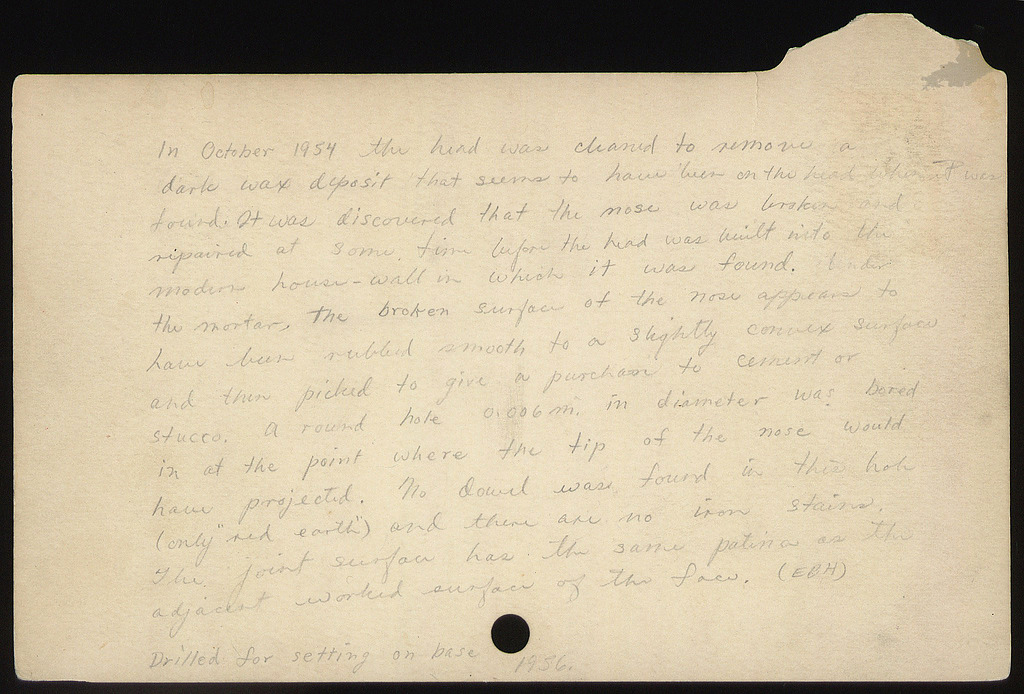 In October 1954 the head was cleaned to remove a
dark wax deposit that seems to have been on the head when it was
found. It was discovered that the nose was broken and
repaired at some time before the head was built into the
modern house-wall in which it was found. Under
the mortar, the broken surface of the nose appears to
have been rubbed smooth to a slightly convex surface
and then picked to give a purchase to cement or
stucco. A round hole 0.006 m. in diameter was bored
in at the point where the tip of the nose would
have projected. No dowel was found in this hole
(only "red earth") and there are no iron stains.
The joint surface has the same patina as the
adjacent worked surface of the face. (EBH)
Drilled for setting on base 1956.